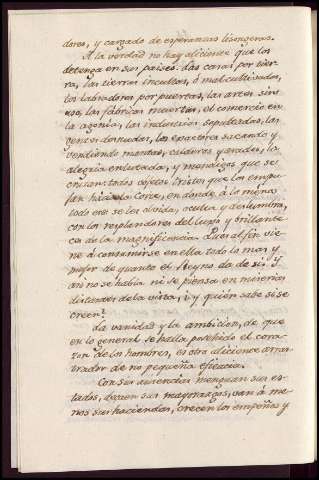 dores, y cargado de esperanzas lisongeras.
A la verdad no hay aliciente que los
detenga en sus paises. Las casas por tier-
ra, las tierras incultas, ó mal cultivadas,
los labradores por puertas, las artes sin
uso, las fábricas muertas, el comercio en
la agonia, las industrias sepultadas, las
gentes desnudas, los exactores sacando y
vendiendo mantas, calderas y arados, la
alegria enlutada, y mendigos que se
cruzan: todos objetos tristes que los empu-
jan hácia la Corte, en donde á lo menos
todo eso se les olvida, oculta y deslumbra,
con los resplandores del lujo y brillante-
ces de la magnificencia. Pues al fin vie-
ne á consumirse en ella todo lo mas y
mejor de quanto el Reyno da de sí. Y
asi no se habla ni se piensa en miserias
distantes de la vista, ¿y quién sabe si se
creen?
La vanidad y la ambicion, de que
en lo general se halla posehido el cora-
zon de los hombres, es otro aliciente arras-
trador de no pequeña eficacia.
Con sus ausencias menguan sus es-
tados, decaen sus mayorazgos, van á me-
nos sus haciendas, crecen los empeños y